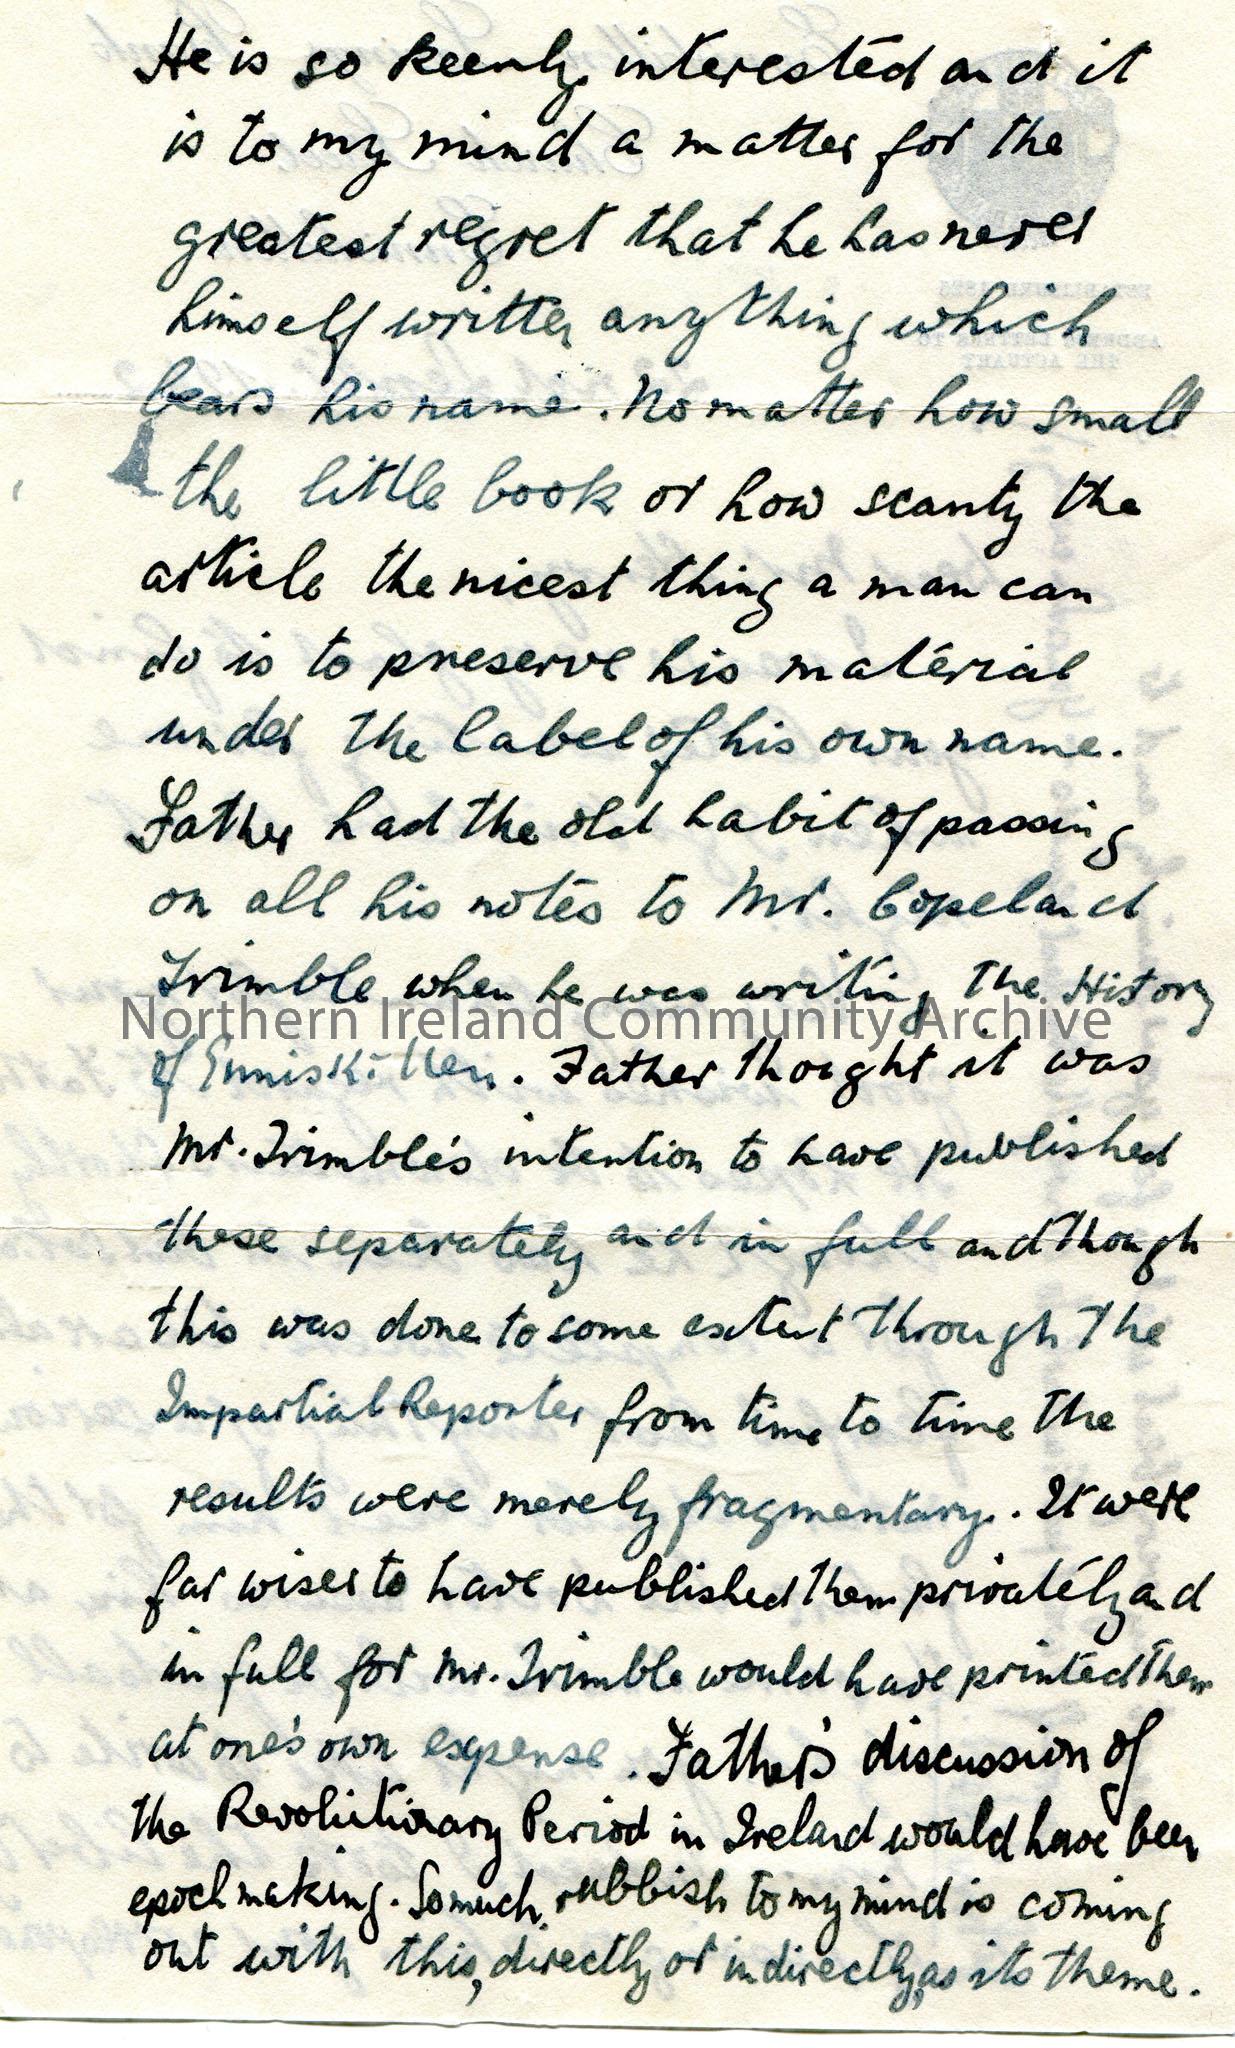 He is so keenly interested and it
is to my mind a matter for the
greatest regret that he has never
himself written anything which
bears his name. No matter how small
the little book or how scanty the
article the nicest thing a man can
do is to preserve his material
under the label of his own name.
Father had the old habit of passing
on all his notes to Mr. Copeland
Trimble when he was writing The History
Northern Ireland Community Archive
of Enniskillen. Father thought it was
Mr. Trimble's intention to have published
these separately and in full and though
this was done to some extent through the
Impartial Reporter from time to time the
results were merely fragmentary. It were
far wiser to have published them privately and
in full for Mr. Trimble would have printed them
at one's own expense. Father's discussion of
the Revolutionary Period in Ireland would have been
epoch making. So much rubbish to my mind is coming
out with this, directly or indirectly, as its theme.
ESTABLISHED 1825
ADDRESS LETTERS TO
THE ACTUARY